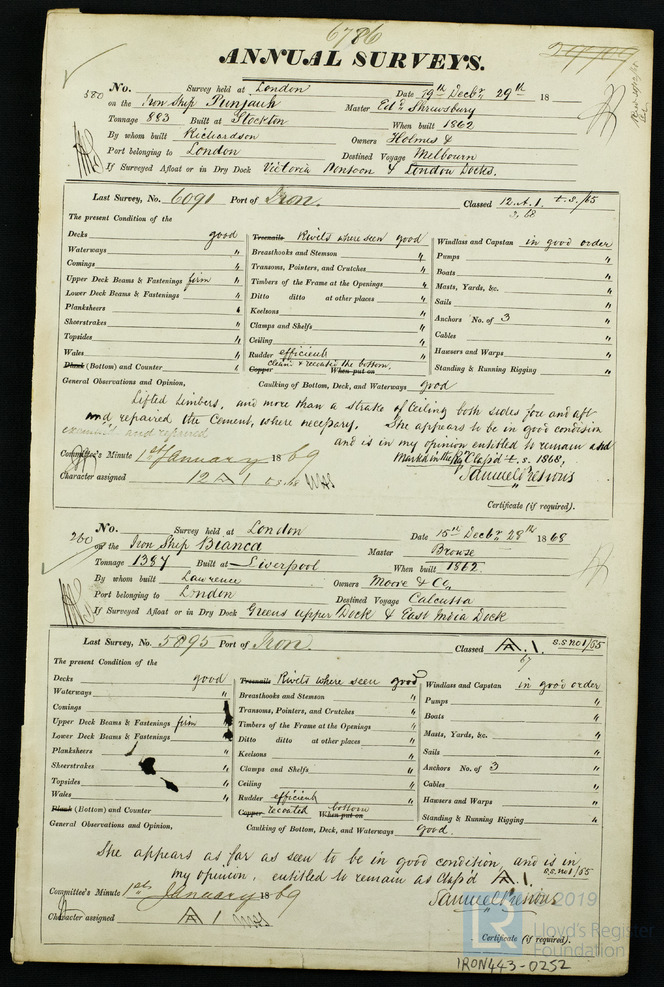 6786
ANNUAL SURVEYS.
No. Survey held at London Date 19th Decbr 29th 18
580 on the Iron Ship Punjaub Master Edwd Shrewsbury
Tonnage 883 Built at Stockton When built 1862
By whom built Richardson Owners Holmes &
Port belonging to London Destined Voyage Melbourn
If Surveyed Afloat or in Dry Dock Victoria Pontoon & London Docks.
Last Survey, No. 6091 Port of Iron. Classed 12.A.1. t.s./65
3,68
The present Condition of the
Decks good Treenails Rivets where seen good Windlass and Capstan in good order
Waterways " Breasthooks and Stemson " Pumps "
Comings " Transoms, Pointers, and Crutches " Boats "
Upper Deck Beams & Fastenings firm " Timbers of the Frame at the Openings " Masts, Yards, &c. "
Lower Deck Beams & Fastenings " Ditto ditto at other places " Sails "
Planksheers " Keelsons " Anchors No. of 3 "
Sheerstrakes " Clamps and Shelfs " Cables "
Topsides " Ceiling " Hawsers and Warps "
Wales " Rudder efficient " Standing & Running Rigging "
Plank (Bottom) and Counter " Copper clean & recoated the bottom. When put on
General Observations and Opinion, Caulking of Bottom, Deck, and Waterways good
Lifted Limbers, and more than a strake of Ceiling both sides fore and aft
and repaired the Cement, where necessary. She appears to be in good condition
examined and repaired
and is in my opinion entitled to remain and
Marked in the Rg. Class'd t.s. 1868,
Committee's Minute 1st January 1869 Samuel Pretious
Character assigned 12 A 1 t.s. 68
Certificate (if required).
No. Survey held at London Date 15th Decbr 28th 1868
260 on the Iron Ship Bianca Master Browse
Tonnage 1387 Built at Liverpool When built 1862.
By whom built Lawrence Owners Moore & Co,
Port belonging to London Destined Voyage Calcutta
If Surveyed Afloat or in Dry Dock Greens upper Dock & East India Dock
Last Survey, No. 5895 Port of Iron. Classed A.1. s.s.no1/65
67
The present Condition of the
Decks good Treenails Rivets where seen good Windlass and Capstan in good order
Waterways " Breasthooks and Stemson " Pumps "
Comings Transoms, Pointers, and Crutches " Boats "
Upper Deck Beams & Fastenings firm " Timbers of the Frame at the Openings " Masts, Yards, &c. "
Lower Deck Beams & Fastenings Ditto ditto at other places " Sails "
Planksheers " Keelsons " Anchors No. of 3 "
Sheerstrakes " Clamps and Shelfs " Cables "
Topsides " Ceiling " Hawsers and Warps "
Wales " Rudder efficient " Standing & Running Rigging "
Plank (Bottom) and Counter Copper recoated bottom When put on
General Observations and Opinion, Caulking of Bottom, Deck, and Waterways good.
She appears as far as seen to be in good condition, and is in
my opinion, entitled to remain as Class'd A.1. s.s.no1/65
Committee's Minute 1st January 1869 Samuel Pretious
Character assigned A 1
Certificate (if required).
IRON443-0252
LR © 2019
Lloyd's Register
Foundation